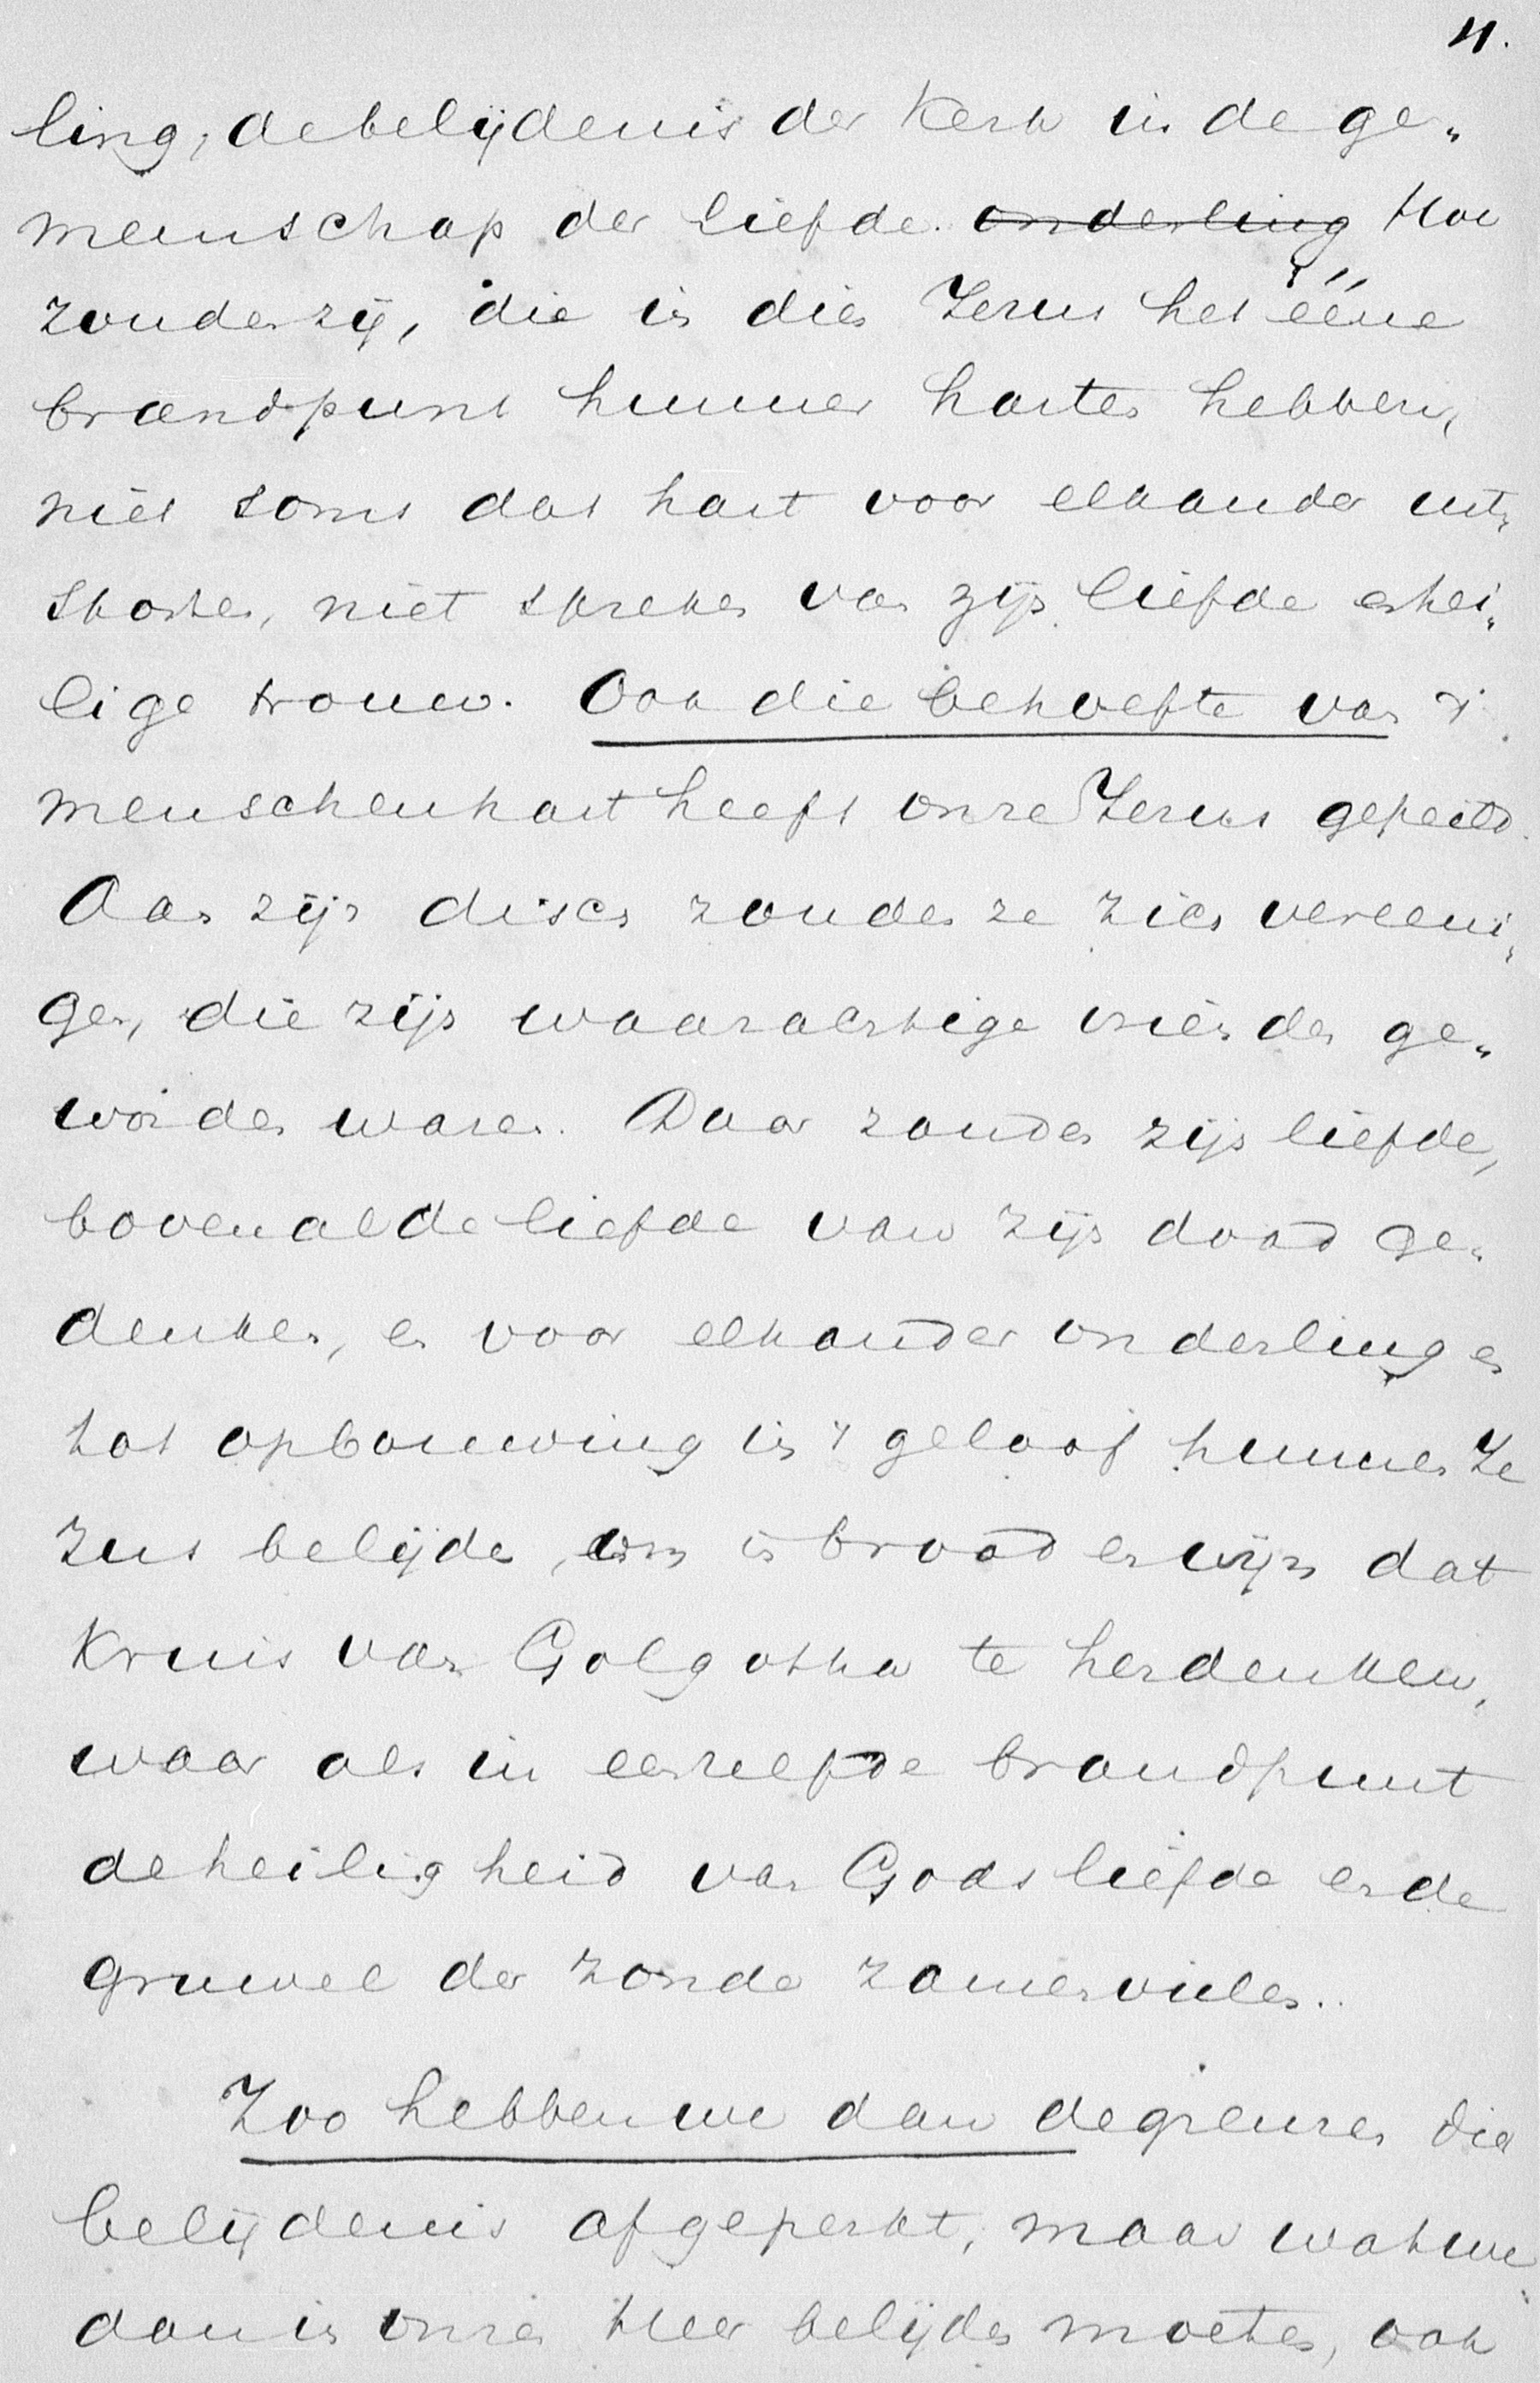 11.
ling, de belijdenis der Kerk in de ge„
meenschap der liefde. ~~onderling~~ Hoe
zouden zij, die in dien Jezus het ééne
brandpunt hunner harten hebben,
niet soms dat hart voor elkander uit„
storten, niet spreken van zijn liefde en hei„
lige trouw. Ook die behoefte van 't
menschenhart heeft onze Jezus gepeild.
Aan zijn disch zouden ze zich vereeni„
gen, die zijn waarachtige vrienden ge„
worden waren. Daar zouden zijn liefde,
bovenal de liefde van zijn dood ge„
denken, en voor elkander onderling en
tot opbouwing in 't geloof hunnen Je
zus belijden, om in brood en wijn dat
Kruis van Golgotha te herdenken,
waar als in eenzelfde brandpunt
de heiligheid van Gods liefde en de
gruwel der zonde zamenvielen..
Zoo hebben we dan de grenzen dier
belijdenis afgeperkt, maar wat we
dan in onzen Heer belijden moeten, ook